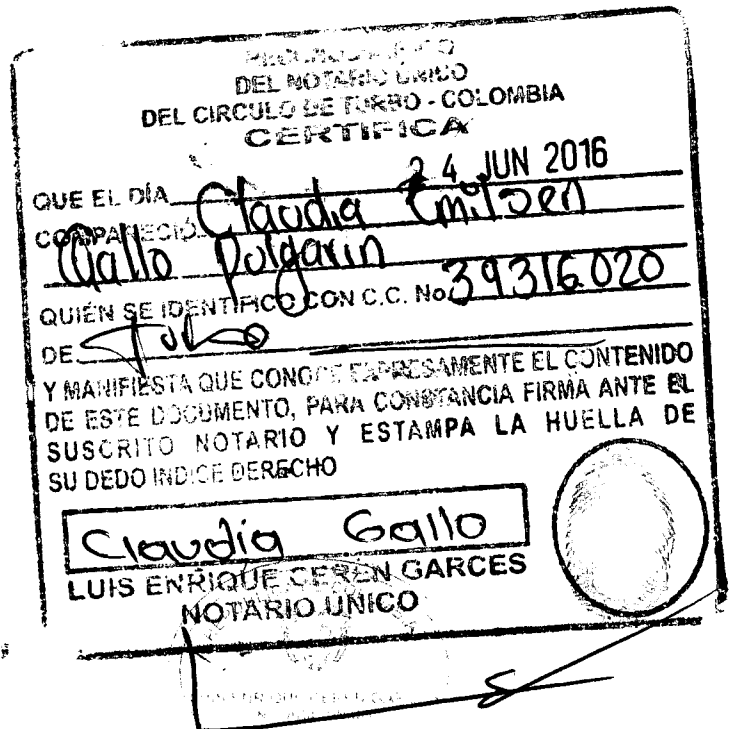 DEL NOTARIO UNICO
DEL CIRCULO DE TURBO - COLOMBIA
CERTIFICA
24 JUN 2016
QUE EL DÍA
COMPARECIÓ Claudia Emilsen
Gallo Pulgarin
QUIÉN SE IDENTIFICO CON C.C. No. 39.316.020
DE Turbo
Y MANIFIESTA QUE CONOCE EXPRESAMENTE EL CONTENIDO
DE ESTE DOCUMENTO, PARA CONSTANCIA FIRMA ANTE EL
SUSCRITO NOTARIO Y ESTAMPA LA HUELLA DE
SU DEDO INDICE DERECHO
Claudia Gallo
LUIS ENRIQUE CEREN GARCES
NOTARIO UNICO